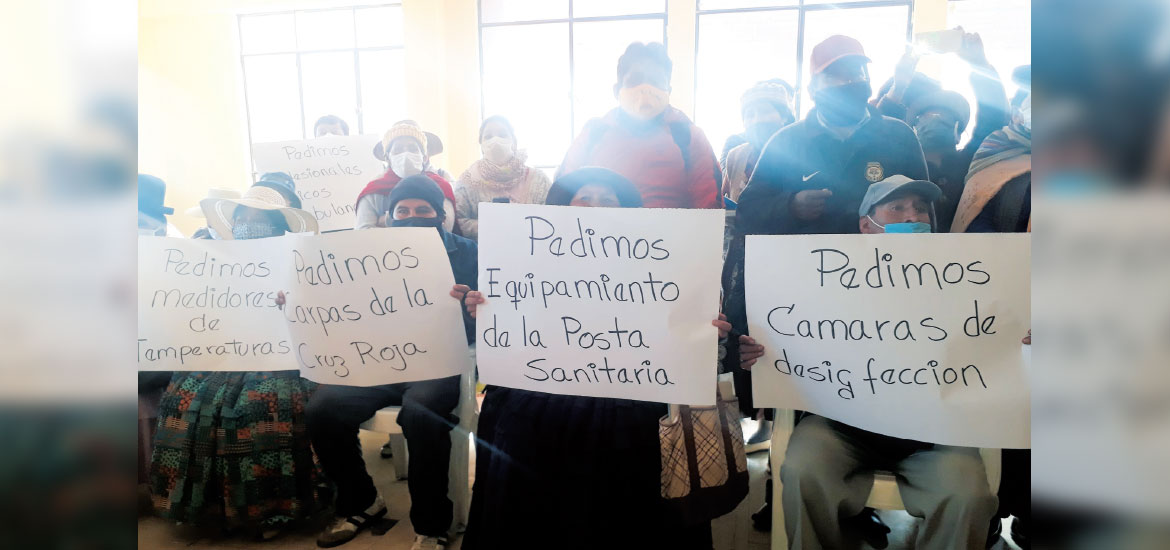 Pedimos
Pedimos
medidores
de
Temperaturas
Pedimos
carpas de la
Cruz Roja
Pedimos
Equipamiento
de la Posta
Sanitaria
Pedimos
Camaras de
desigfeccion